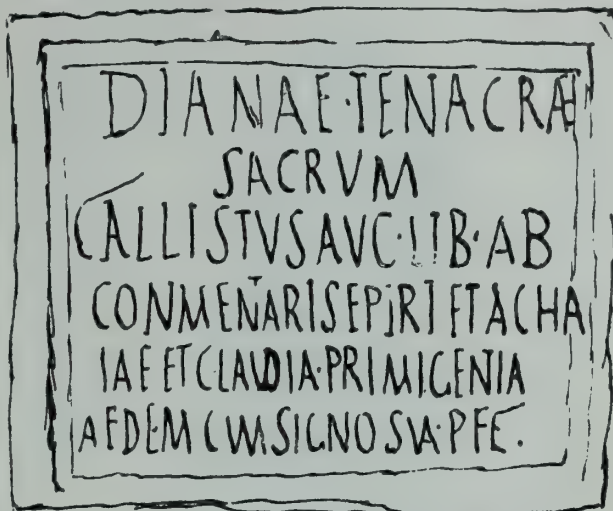 DIANAE·TENACRÆ
SACRVM
CALLISTVS AVC·LIB·AB
CONMENTARIS EPIRI ET ACHA
IAE ET CLAVDIA·PRIMIGENIA
AEDEM CVM SIGNO SVA·PFE·